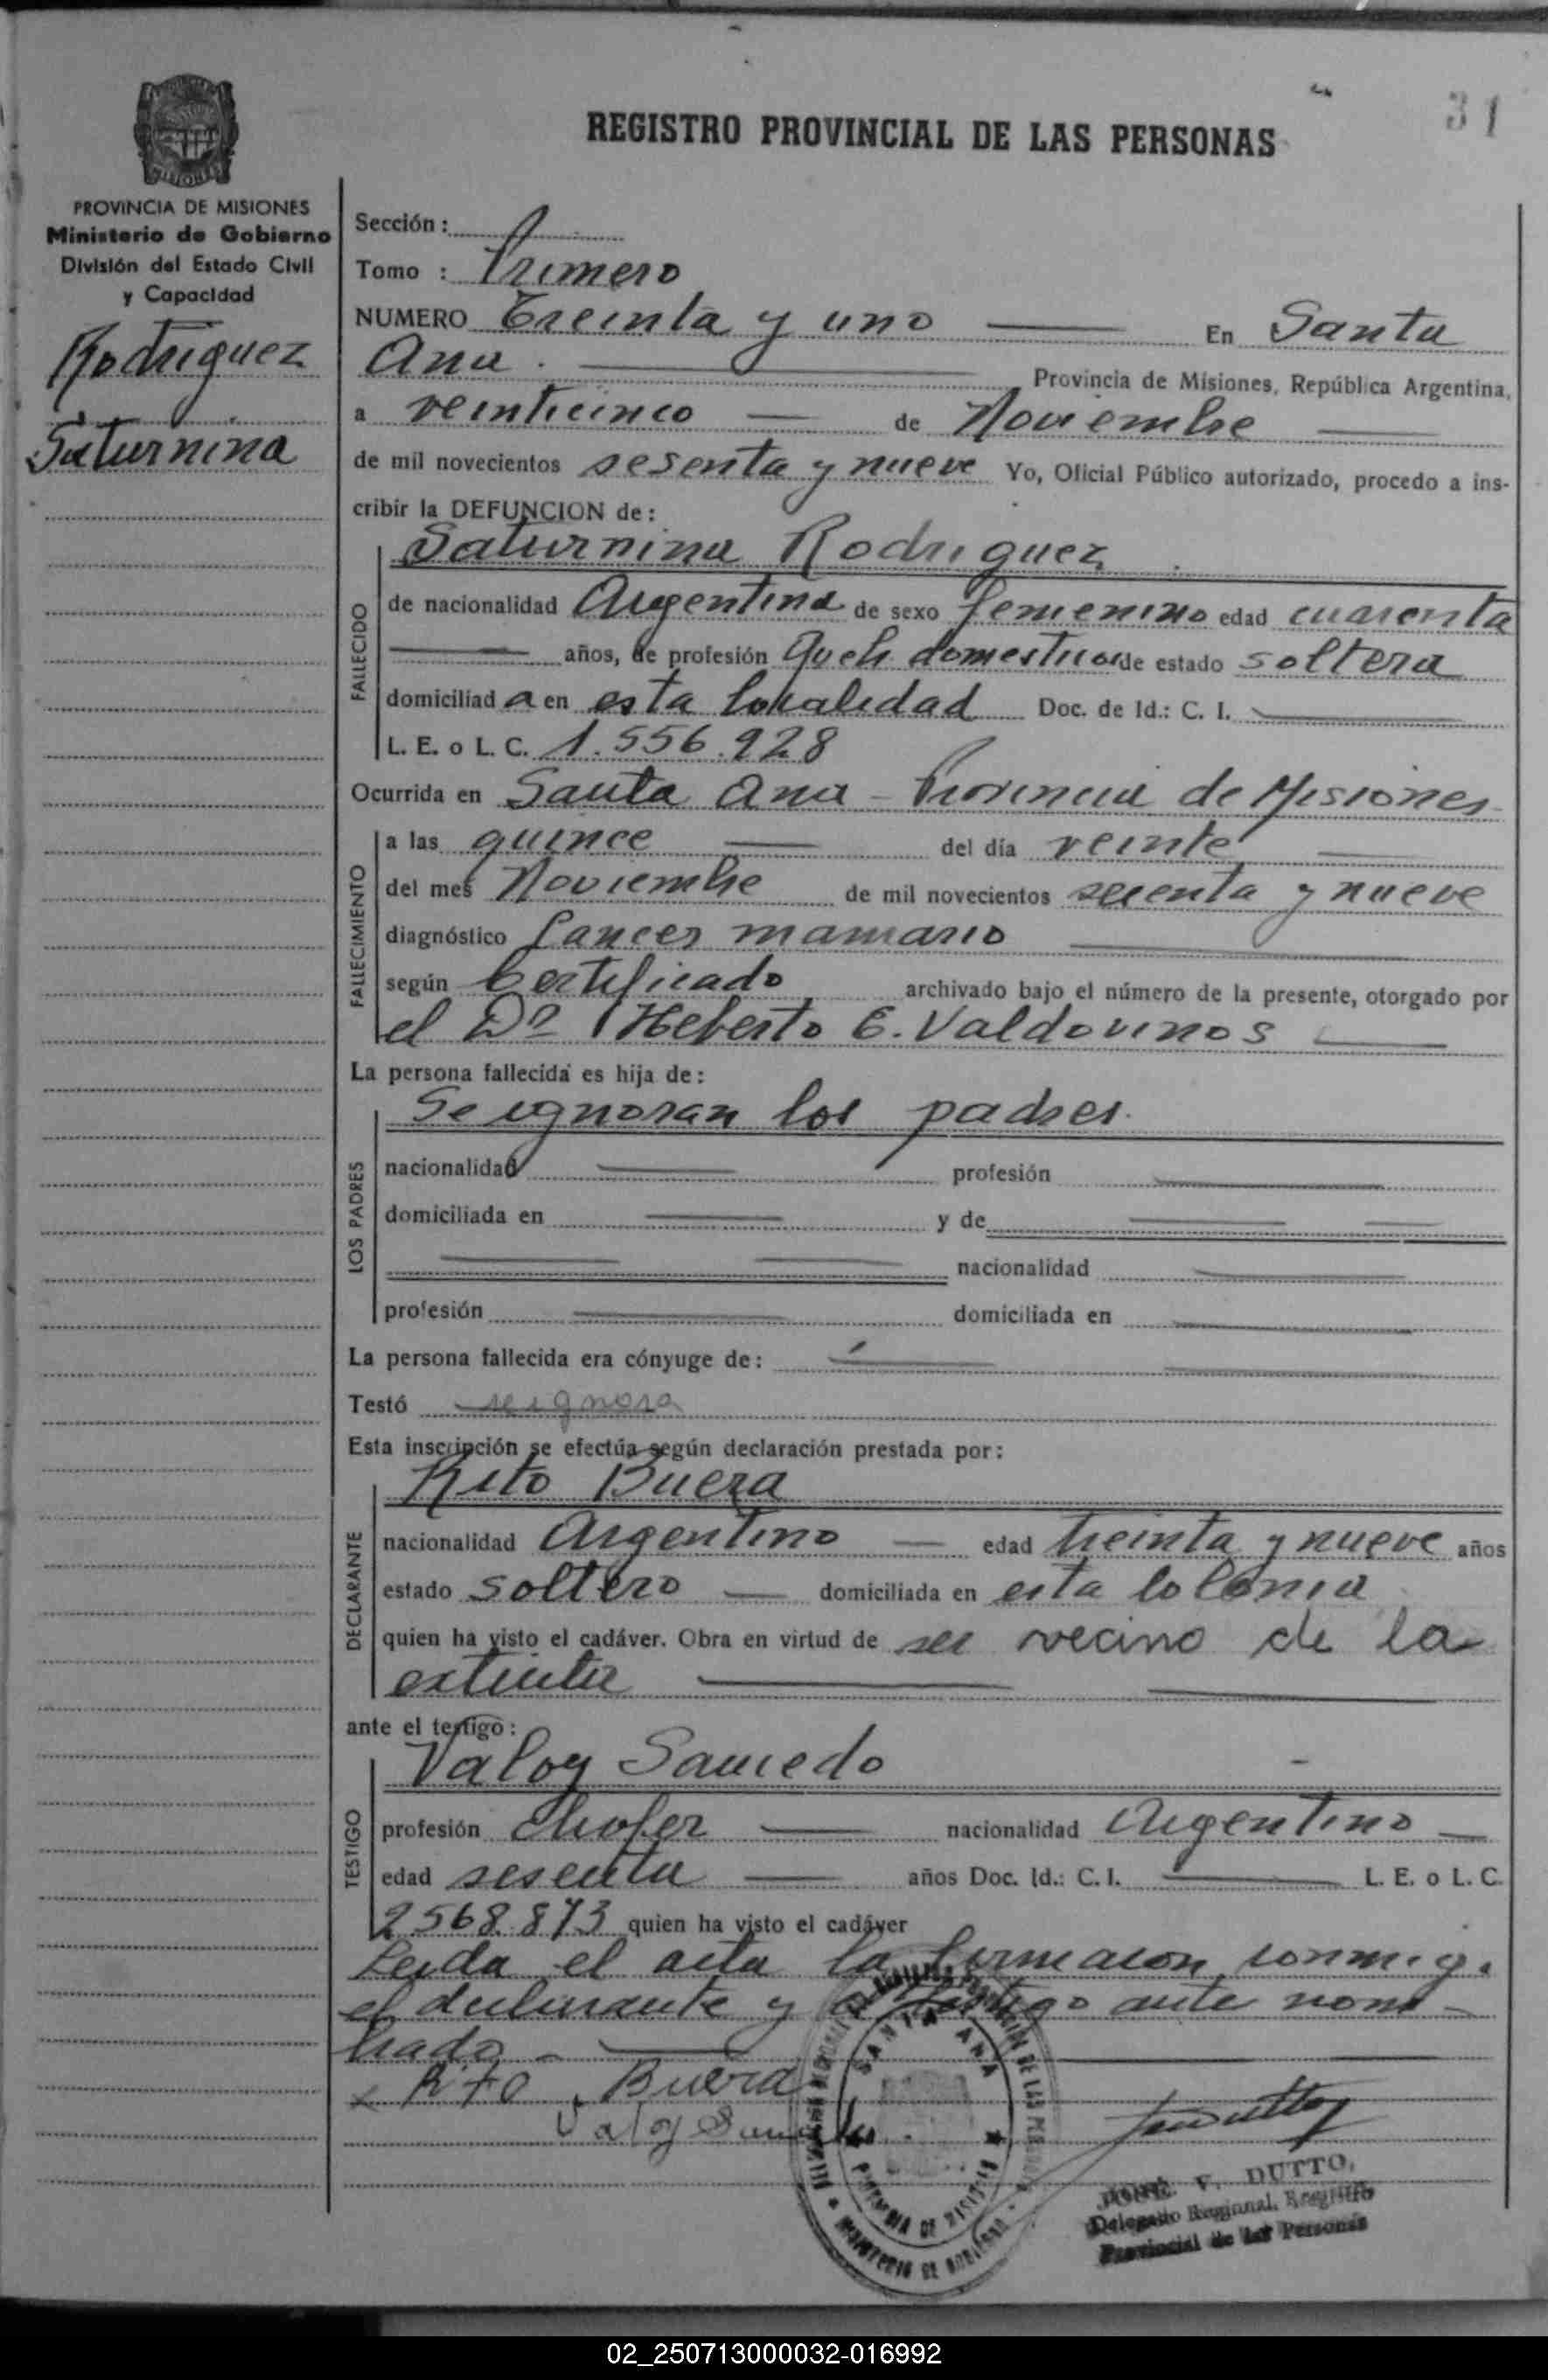 31
REGISTRO PROVINCIAL DE LAS PERSONAS
PROVINCIA DE MISIONES
Ministerio de Gobierno
División del Estado Civil
y Capacidad
Rodriguez
Saturnina
Sección:
Tomo : Primero
NUMERO Treinta y uno En Santa
Ana. Provincia de Misiones, República Argentina,
a veinticinco de Noviembre
de mil novecientos sesenta y nueve Yo, Oficial Público autorizado, procedo a ins-
cribir la DEFUNCION de:
Saturnina Rodriguez
FALLECIDO
de nacionalidad Argentina de sexo femenino edad cuarenta
años, de profesión Queh. domesticos de estado soltera
domiciliad a en esta localidad Doc. de Id.: C. I.
L. E. o L. C. 1.556.928
Ocurrida en Santa Ana - Provincia de Misiones
FALLECIMIENTO
a las quince del día veinte
del mes Noviembre de mil novecientos sesenta y nueve
diagnóstico Cancer mamario
según Certificado archivado bajo el número de la presente, otorgado por
el Dr Heberto E. Valdovinos
La persona fallecida es hija de:
Se ignoran los padres.
LOS PADRES
nacionalidad profesión
domiciliada en y de
nacionalidad
profesión domiciliada en
La persona fallecida era cónyuge de:
Testó se ignora
Esta inscripción se efectúa según declaración prestada por:
Rito Buera
DECLARANTE
nacionalidad Argentino edad treinta y nueve años
estado soltero domiciliada en esta Colonia
quien ha visto el cadáver. Obra en virtud de ser vecino de la
extinta
ante el testigo:
Valoy Saucedo
TESTIGO
profesión Chofer nacionalidad Argentino
edad sesenta años Doc. Id.: C. I. L. E. o L. C.
2568.873 quien ha visto el cadáver
Leida el acta la firmaron conmigo
el declarante y el testigo ante nom-
brado -
x Rito Buera
Valoy
SANTA ANA
PROVINCIA DE MISIONES
MINISTERIO DE GOBIERNO
JOSE V. DUTTO,
Delegado Regional, Registro
Provincial de las Personas
02_250713000032-016992